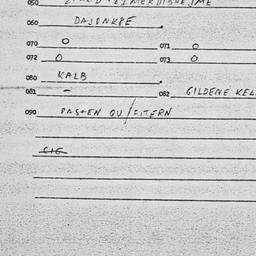 050
060 DAJONKPE .
070 0 071 0
072 0 073 0
080 KALB .
081 - 082 GILDENE KEL
090 PASTEN QU/FITERN
CIG